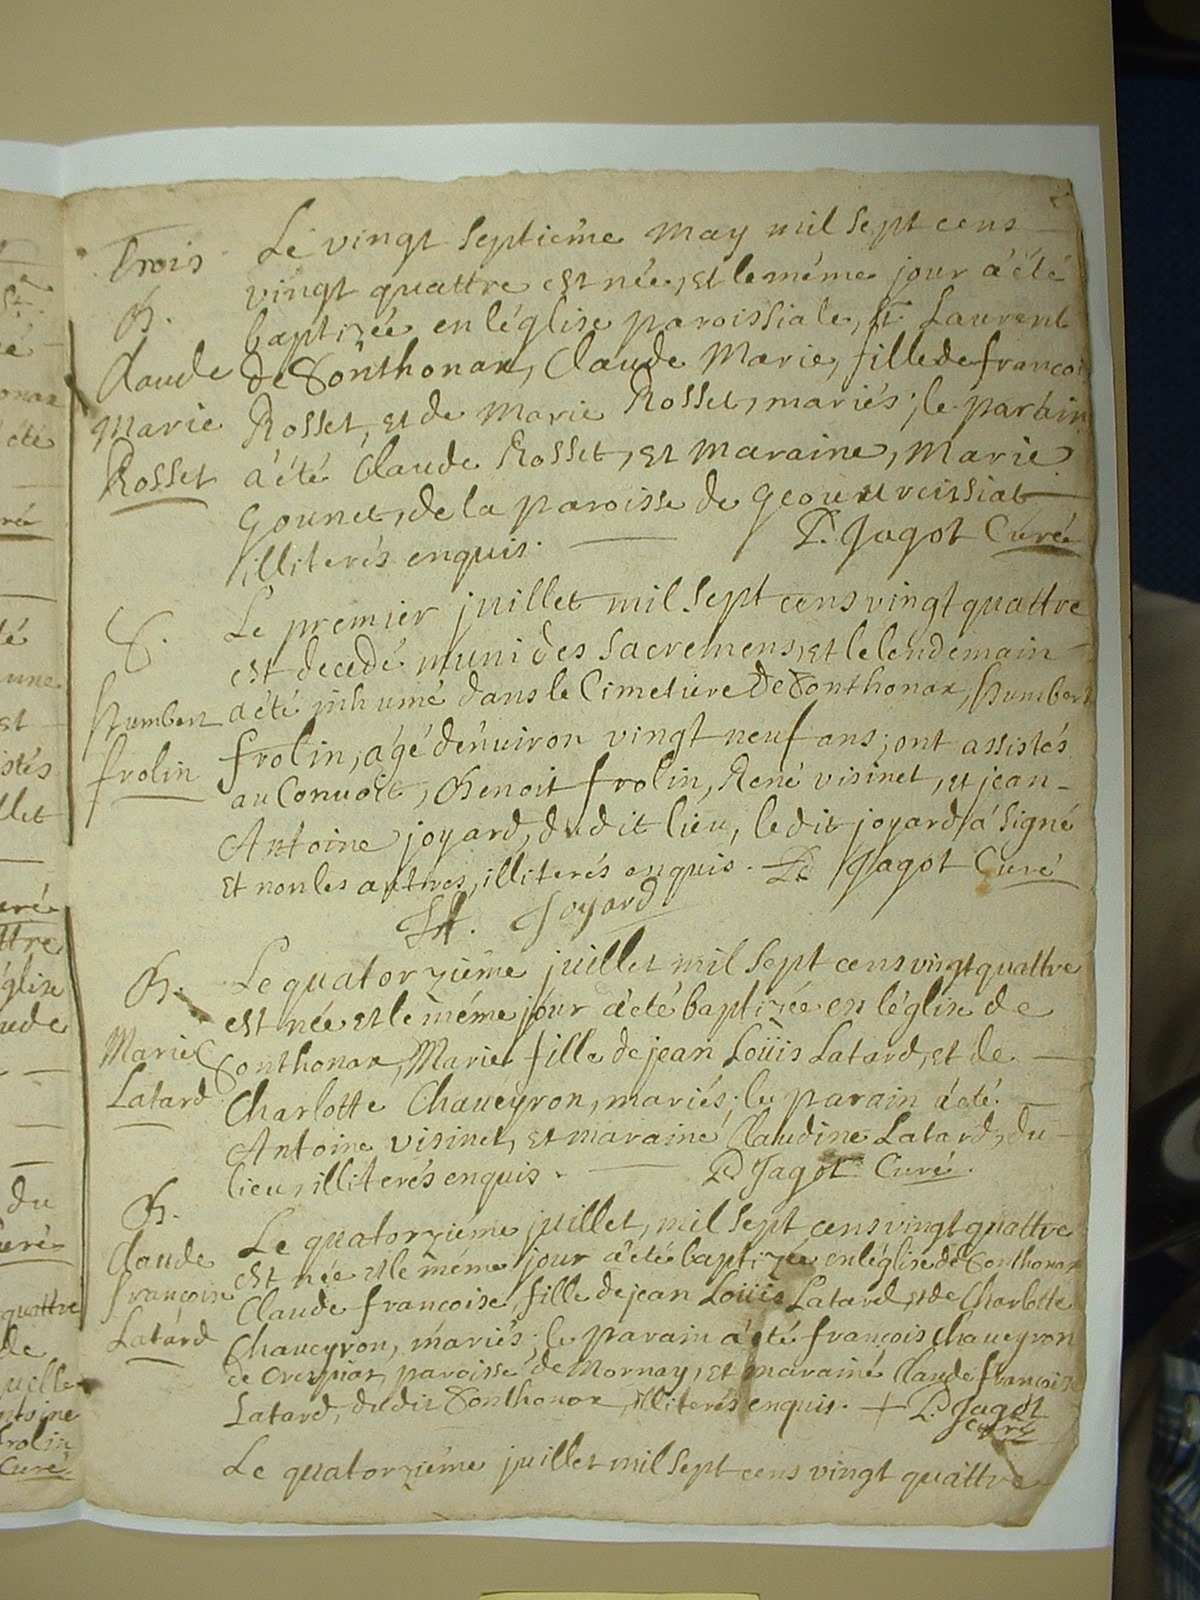 Trois
Le vingt septième may mil sept cens
vingt quattre est née, et le méme jour a été
B.
baptizée en léglise paroissiale, St. Laurent
Claude
de Sonthonax, Claude Marie, fille de françoi
Marie
Rosset, et de Marie Rosset, mariés; le parain
Rosset
a été Claude Rosset, et maraine, Marie
Gounet, de la paroisse de geouureissiat
illiterés enquis.
P. Jagot Curé
S.
Le premier juillet mil sept cens vingt quattre
est decedé muni des sacremens, et le lendemain
Humbert
a été inhumé dans le Cimetiére de Sonthonax, Humbert
frolin
frolin, agé d'enuiron vingt neuf ans; ont assistés
au Conuoit, Benoit frolin, René visinet, et jean
Antoine joyard, dudit lieu, ledit joyard a signé
et non les autres, illiterés enquis. P. Jagot Curé
Joyard
B.
Le quatorziéme juillet mil sept cens vingt quattre
est née et le méme jour a été baptizée en léglise de
Marie
Sonthonax, Marie fille de jean Loüis Latard, et de
Latard
Charlotte Chaueyron, mariés; le parain a été
Antoine visinet, et maraine Claudine Latard, du
lieu, illiterés enquis.
P. Jagot Curé.
B.
Le quatorziéme juillet, mil sept cens vingt quattre
Claude
est née et le méme jour a été baptizée en léglise de Sonthonax
françoise
Claude francoise, fille de jean Loüis Latard, et de Charlotte
Latard
Chaueyron, mariés; le parain a été françois Chaueyron
de Crespiat, paroisse de Mornay, et maraine Claude françoise
Latard, dudit Sonthonax, illiterés enquis. P. Jagot
Curé
Le quatorziéme juillet mil sept cens vingt quattre